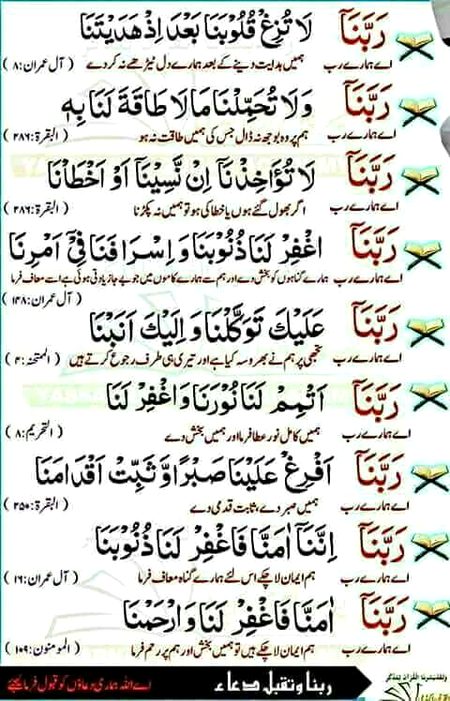 رَبَّنَا لَا تُزِغْ قُلُوْبَنَا بَعْدَ اِذْ هَدَيْتَنَا
اے ہمارے رب ہمیں ہدایت دینے کے بعد ہمارے دل ٹیڑھے نہ کر دے (آل عمران:۸)
رَبَّنَا وَلَا تُحَمِّلْنَا مَا لَا طَاقَةَ لَنَا بِهٖ
اے ہمارے رب ہم پر وہ بوجھ نہ ڈال جس کی ہمیں طاقت نہ ہو (البقرۃ:۲۸۶)
رَبَّنَا لَا تُؤَاخِذْنَا اِنْ نَّسِيْنَا اَوْ اَخْطَاْنَا
اے ہمارے رب اگر بھول گئے ہوں یا خطا کی ہو تو ہمیں نہ پکڑنا (البقرۃ:۲۸۶)
رَبَّنَا اغْفِرْ لَنَا ذُنُوْبَنَا وَاِسْرَافَنَا فِيْٓ اَمْرِنَا
اے ہمارے رب ہمارے گناہوں کو بخش دے اور ہم سے ہمارے کاموں میں جو بے جا زیادتی ہوئی ہے اسے معاف فرما
(آل عمران:۱۴۸)
رَبَّنَا عَلَيْكَ تَوَكَّلْنَا وَاِلَيْكَ اَنَبْنَا
اے ہمارے رب تجھی پر ہم نے بھروسہ کیا ہے اور تیری ہی طرف رجوع کرتے ہیں (الممتحنۃ:۴)
رَبَّنَا اَتْمِمْ لَنَا نُوْرَنَا وَاغْفِرْ لَنَا
اے ہمارے رب ہمیں کامل نور عطا فرما اور ہمیں بخش دے (التحریم:۸)
رَبَّنَا اَفْرِغْ عَلَيْنَا صَبْرًا وَّثَبِّتْ اَقْدَامَنَا
اے ہمارے رب ہمیں صبر دے، ثابت قدمی دے (البقرۃ:۲۵۰)
رَبَّنَا اِنَّنَا اٰمَنَّا فَاغْفِرْ لَنَا ذُنُوْبَنَا
اے ہمارے رب ہم ایمان لاچکے اس لئے ہمارے گناہ معاف فرما (آل عمران:۱۶)
رَبَّنَا اٰمَنَّا فَاغْفِرْ لَنَا وَارْحَمْنَا
اے ہمارے رب ہم ایمان لاچکے ہیں تو ہمیں بخش اور ہم پر رحم فرما (المومنون:۱۰۹)
ربنا وتقبل دعاء اے اللہ ہماری دعاؤں کو قبول فرما لیجئے